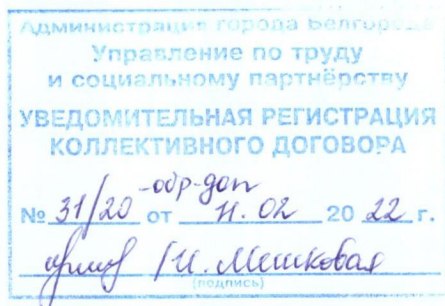 Администрация города Белгорода
Управление по труду
и социальному партнёрству
УВЕДОМИТЕЛЬНАЯ РЕГИСТРАЦИЯ
КОЛЛЕКТИВНОГО ДОГОВОРА
-обр-доп
№ 31/20 от 11.02 2022 г.
/И. Мешковая
(подпись)